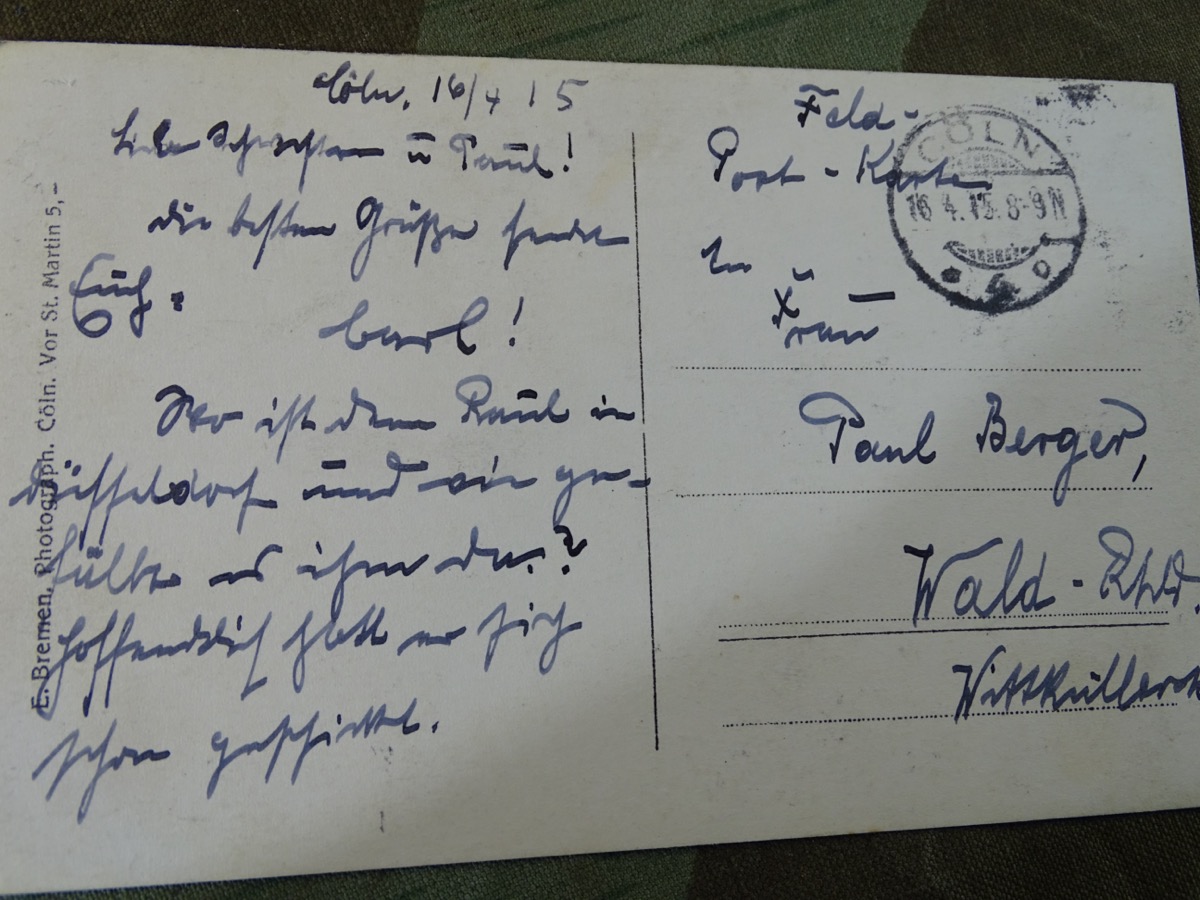 Cöln, 16/4 15
Liebe Schwester u Paul!
die besten Grüße sendet
Euch
Carl!
Wo ist denn Paul in
Düsseldorf und wie ge-
fällt es ihm da?
Hoffendlich hatt er sich
schon geschickt.
Feld-
Post-Karte
An
Frau
Paul Berger,
Wald-Rhld.
CÖLN
16.4.15.8-9N
E. Bremen, Photograph. Cöln. Vor St. Martin 5,-